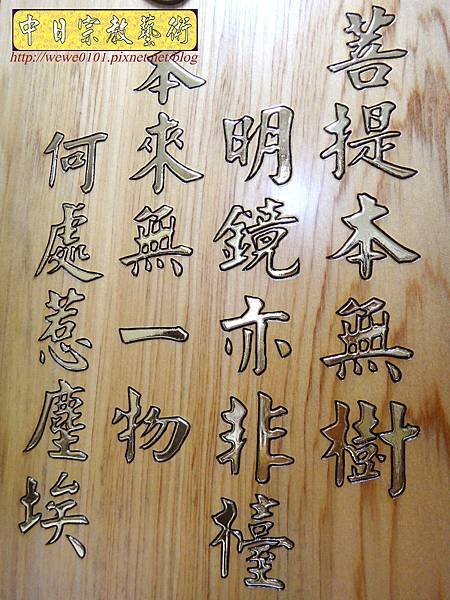 中日宗教藝術
http://wewe0101.pixnet.net/blog
菩提本無樹
明鏡亦非檯
本來無一物
何處惹塵埃